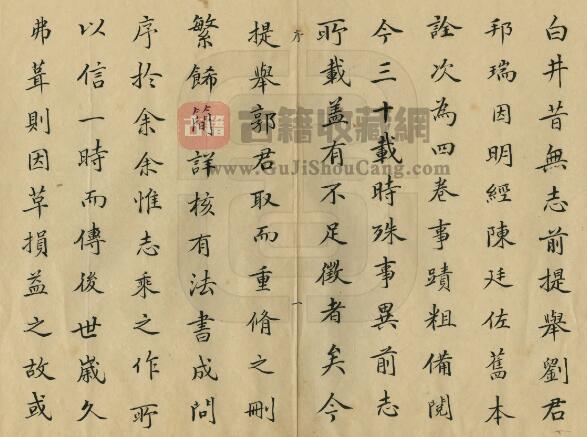 白井昔無志前提舉劉君
邦瑞因明經陳廷佐舊本
詮次為四卷事蹟粗備閱
今三十載時殊事異前志
所載蓋有不足徵者矣今
序
一
提舉郭君取而重脩之刪
繁飾簡詳核有法書成問
序於余余惟志乘之作所
以信一時而傳後世歲久
弗葺則因革損益之故或
古籍
古籍收藏網
www.GuJiShouCang.com